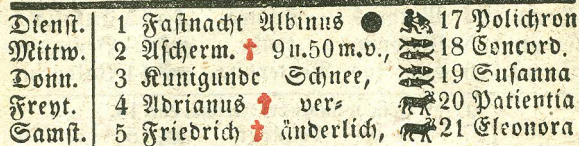 Dienst. 1 Fastnacht Albinus ● 17 Polichron
Mittw. 2 Ascherm. † 9 u. 50 m. v., 18 Concord.
Donn. 3 Kunigunde Schnee, 19 Susanna
Freyt. 4 Adrianus † ver= 20 Patientia
Samst. 5 Friedrich † änderlich, 21 Eleonora